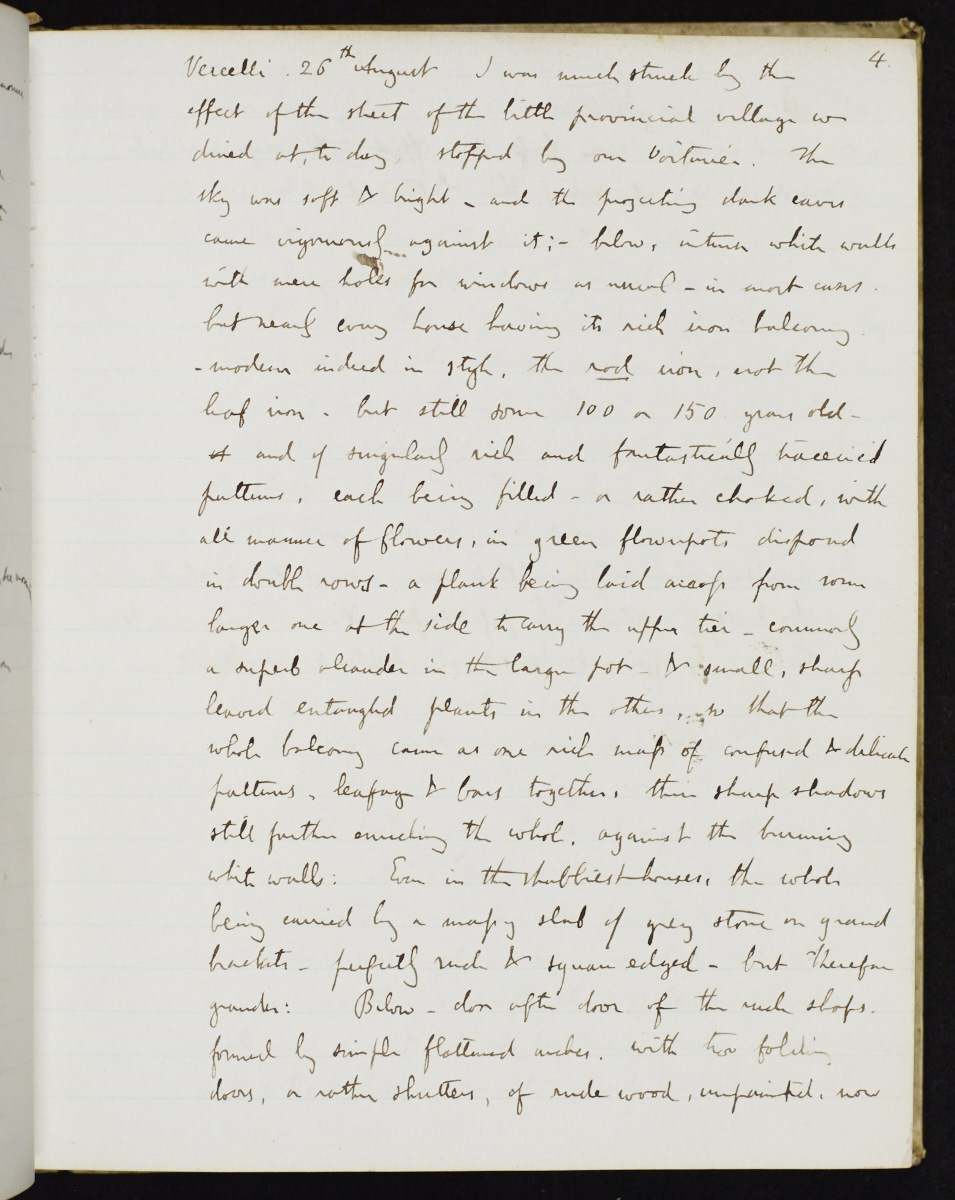 4.
Vercelli. 26th August I was much struck by the
effect of the street of the little provincial village we
dined at, to day, stopped by our Voiturier. The
sky was soft & bright - and the projecting dark eaves
came vigorously against it; - below, intense white walls
with mere holes for windows as usual - in most cases.
but nearly every house having its rich iron balcony.
- modern indeed in style, the rod iron, not the
leaf iron - but still some 100 or 150 years old -
and of singularly rich and fantastically traceried
patterns, each being filled - or rather choked, with
all manner of flowers, in green flowerpots disposed
in double rows - a plank being laid across from some
larger one at the side to carry the upper tier - commonly
a superb oleander in the large pot - & small, sharp
leaved entangled plants in the others, so that the
whole balcony came as one rich mass of confused & delicate
patterns, leafage & bars together, their sharp shadows
still further enriching the whole, against the burning
white walls: Even in the shabbiest houses, the whole
being carried by a massy slab of grey stone on grand
brackets - perfectly rude & square edged - but therefore
grander: Below - door after door of the rude shops.
formed by simple flattened arches, with two folding
doors, or rather shutters, of rude wood, unpainted, now